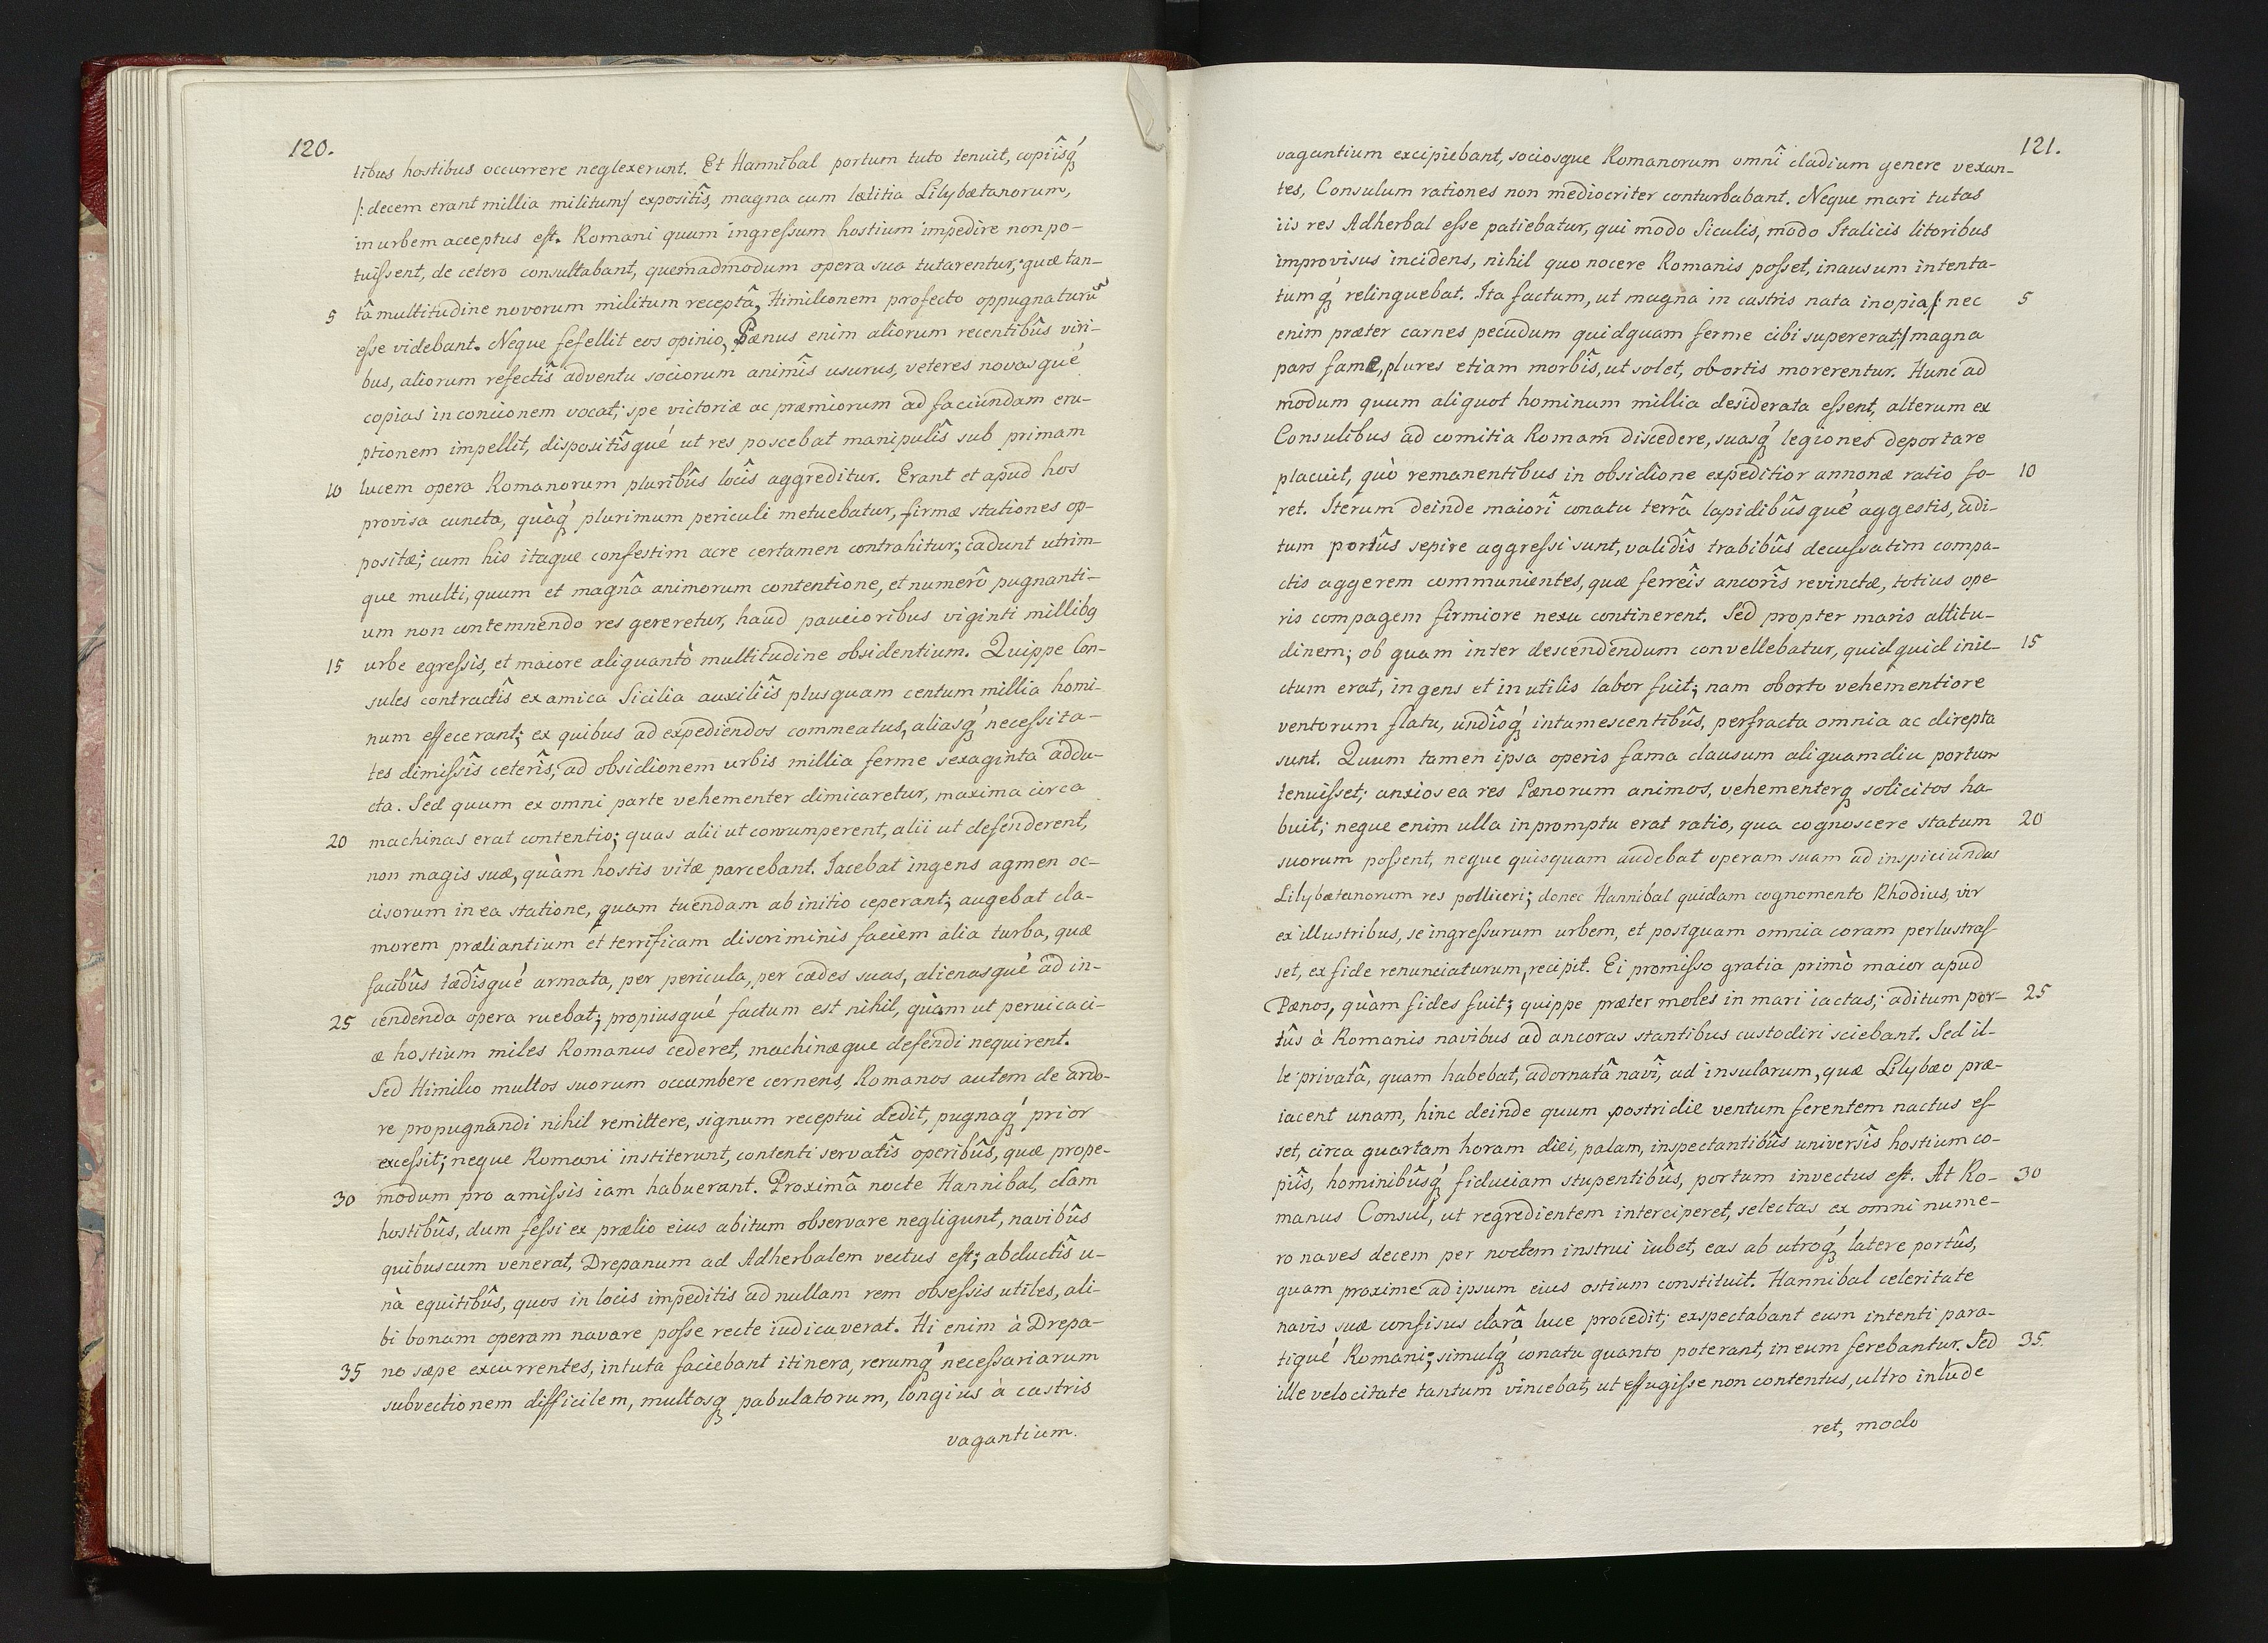 120.
tibus hostibus occurrere neglexerunt. Et Hannibal portum tuto tenuit, copiîsq́
/: decem erant millia militum/ expositîs, magna cum lætitia Lilybætanorum,
in urbem acceptus est. Romani quum ingressum hostium impedire non po-
tuissent, de cetero consultabant, quemadmodum opera sua tutarentur, quæ tan-
5 tâ multitudine novorum militum receptâ, Himilconem profecto oppugnaturũ
esse videbant. Neque fefellit eos opinio, Pænus enim aliorum recentibûs viri-
bus, aliorum refectîs adventu sociorum animîs usurus, veteres novasqué
copias in concionem vocat, spe victoriæ ac præmiorum ad faciundam eru-
ptionem impellit, dispositîsqué ut res poscebat manipulîs sub primam
10 lucem opera Romanorum pluribûs locîs aggreditur. Erant et apud hos
provisa cuncta, quàq́ plurimum periculi metuebatur, firmæ stationes op-
positæ; cum his itaque confestim acre certamen contrahitur; cadunt utrim-
que multi, quum et magnâ animorum contentione, et numerô pugnanti-
um non contemnendo res gereretur, haud paucioribus viginti millibq
15 urbe egressis, et maiore aliquantò multitudine obsidentium. Quippe Con-
sules contractîs ex amica Sicilia auxiliîs plusquam centum millia homi-
num effecerant; ex quibus ad expediendos commeatus, aliasq́ necessita-
tes dimissîs ceterîs, ad obsidionem urbis millia ferme sexaginta addu-
cta. Sed quum ex omni parte vehementer dimicaretur, maxima circa
20 machinas erat contentio; quas alii ut corrumperent, alii ut defenderent,
non magis suæ, quàm hostis vitæ parcebant. Iacebat ingens agmen oc-
cisorum in ea statione, quam tuendam ab initio ceperant; augebat cla-
morem præliantium et terrificam discriminis faciem alia turba, quæ
facibûs tædîsqué armata, per pericula, per cædes suas, alienasqué ad in-
25 cendenda opera ruebat; propiusqué factum est nihil, quàm ut pervicaci-
æ hostium miles Romanus cederet, machinæque defendi nequirent.
Sed Himilco multos suorum occumbere cernens, Romanos autem de ardo-
re propugnandi nihil remittere, signum receptui dedit, pugnaq́ prior
excessit; neque Romani institerunt, contenti servatîs operibûs, quæ prope-
30 modum pro amissis iam habuerant. Proximâ nocte Hannibal, clam
hostibûs, dum fessi ex prælio eius abitum observare negligunt, navibûs
quibuscum venerat, Drepanum ad Adherbalem vectus est; abductîs u-
nà equitibûs, quos in locis impeditis ad nullam rem obsessis utiles, ali-
bi bonam operam navare posse recte iudicaverat. Hi enim à Drepa-
35 no sæpe excurrentes, intuta faciebant itinera, rerumq́ necessariarum
subvectionem difficilem, multosq pabulatorum, longius à castris
vagantium.
121.
vagantium excipiebant, sociosque Romanorum omnî cladium genere vexan-
tes, Consulum rationes non mediocriter conturbabant. Neque mari tutas
iis res Adherbal esse patiebatur, qui modo Siculis, modo Italicis litoribus
improvisus incidens, nihil quo nocere Romanis posset, inausum intenta-
tumq́ relinquebat. Ita factum, ut magna in castris nata inopia /: nec 5
enim præter carnes pecudum quidquam ferme cibi supererat:/ magna
pars fame, plures etiam morbîs, ut solet, obortis morerentur. Hunc ad
modum quum aliquot hominum millia desiderata essent, alterum ex
Consulibus ad comitia Romam discedere, suasq́ legiones deportare
placuit, quò remanentibus in obsidione expeditior annonæ ratio fo- 10
ret. Iterum deinde maiorî conatu terrâ lapidibûsqué aggestis, adi-
tum portûs sepire aggressi sunt, validîs trabibûs decussatim compa-
ctis aggerem communientes, quæ ferreîs ancorîs revinctæ, totius ope-
ris compagem firmiore nexu continerent. Sed propter maris altitu-
dinem, ob quam inter descendendum convellebatur, quidquid inie- 15
ctum erat, ingens et inutilis labor fuit; nam oborto vehementiore
ventorum flatu, undîsq́ intumescentibûs, perfracta omnia ac direpta
sunt. Quum tamen ipsa operis fama clausum aliquamdiu portum
tenuisset; anxios ea res Pænorum animos, vehementerq solicitos ha-
buit; neque enim ulla in promptu erat ratio, qua cognoscere statum 20
suorum possent, neque quisquam audebat operam suam ad inspiciundas
Lilybætanorum res polliceri; donec Hannibal quidam cognomento Rhodius, vir
ex illustribus, se ingressurum urbem, et postquam omnia coram perlustras-
set, ex fide renunciaturum, recipit. Ei promisso gratia primò maior apud
Pænos, quàm fides fuit; quippe præter moles in mari iactas, aditum por- 25
tûs à Romanis navibus ad ancoras stantibus custodiri sciebant. Sed il-
le privatâ, quam habebat, adornatâ navî, ad insularum, quæ Lilybæo præ-
iacent unam, hinc deinde quum postridie ventum ferentem nactus es-
set, circa quartam horam diei, palam, inspectantibûs universîs hostium co-
piîs, hominibûsq́ fiduciam stupentibûs, portum invectus est. At Ro- 30
manus Consul, ut regredientem interciperet, selectas ex omni nume-
ro naves decem per noctem instrui iubet, eas ab utroq́ latere portûs,
quam proxime ad ipsum eius ostium constituit. Hannibal celeritate
navis suæ confisus clarâ luce procedit; exspectabant eum intenti para-
tiqué Romani; simulq́ conatu quanto poterant, in eum ferebantur. Sed 35.
ille velocitate tantum vincebat, ut effugisse non contentus, ultro inlude
ret, modo